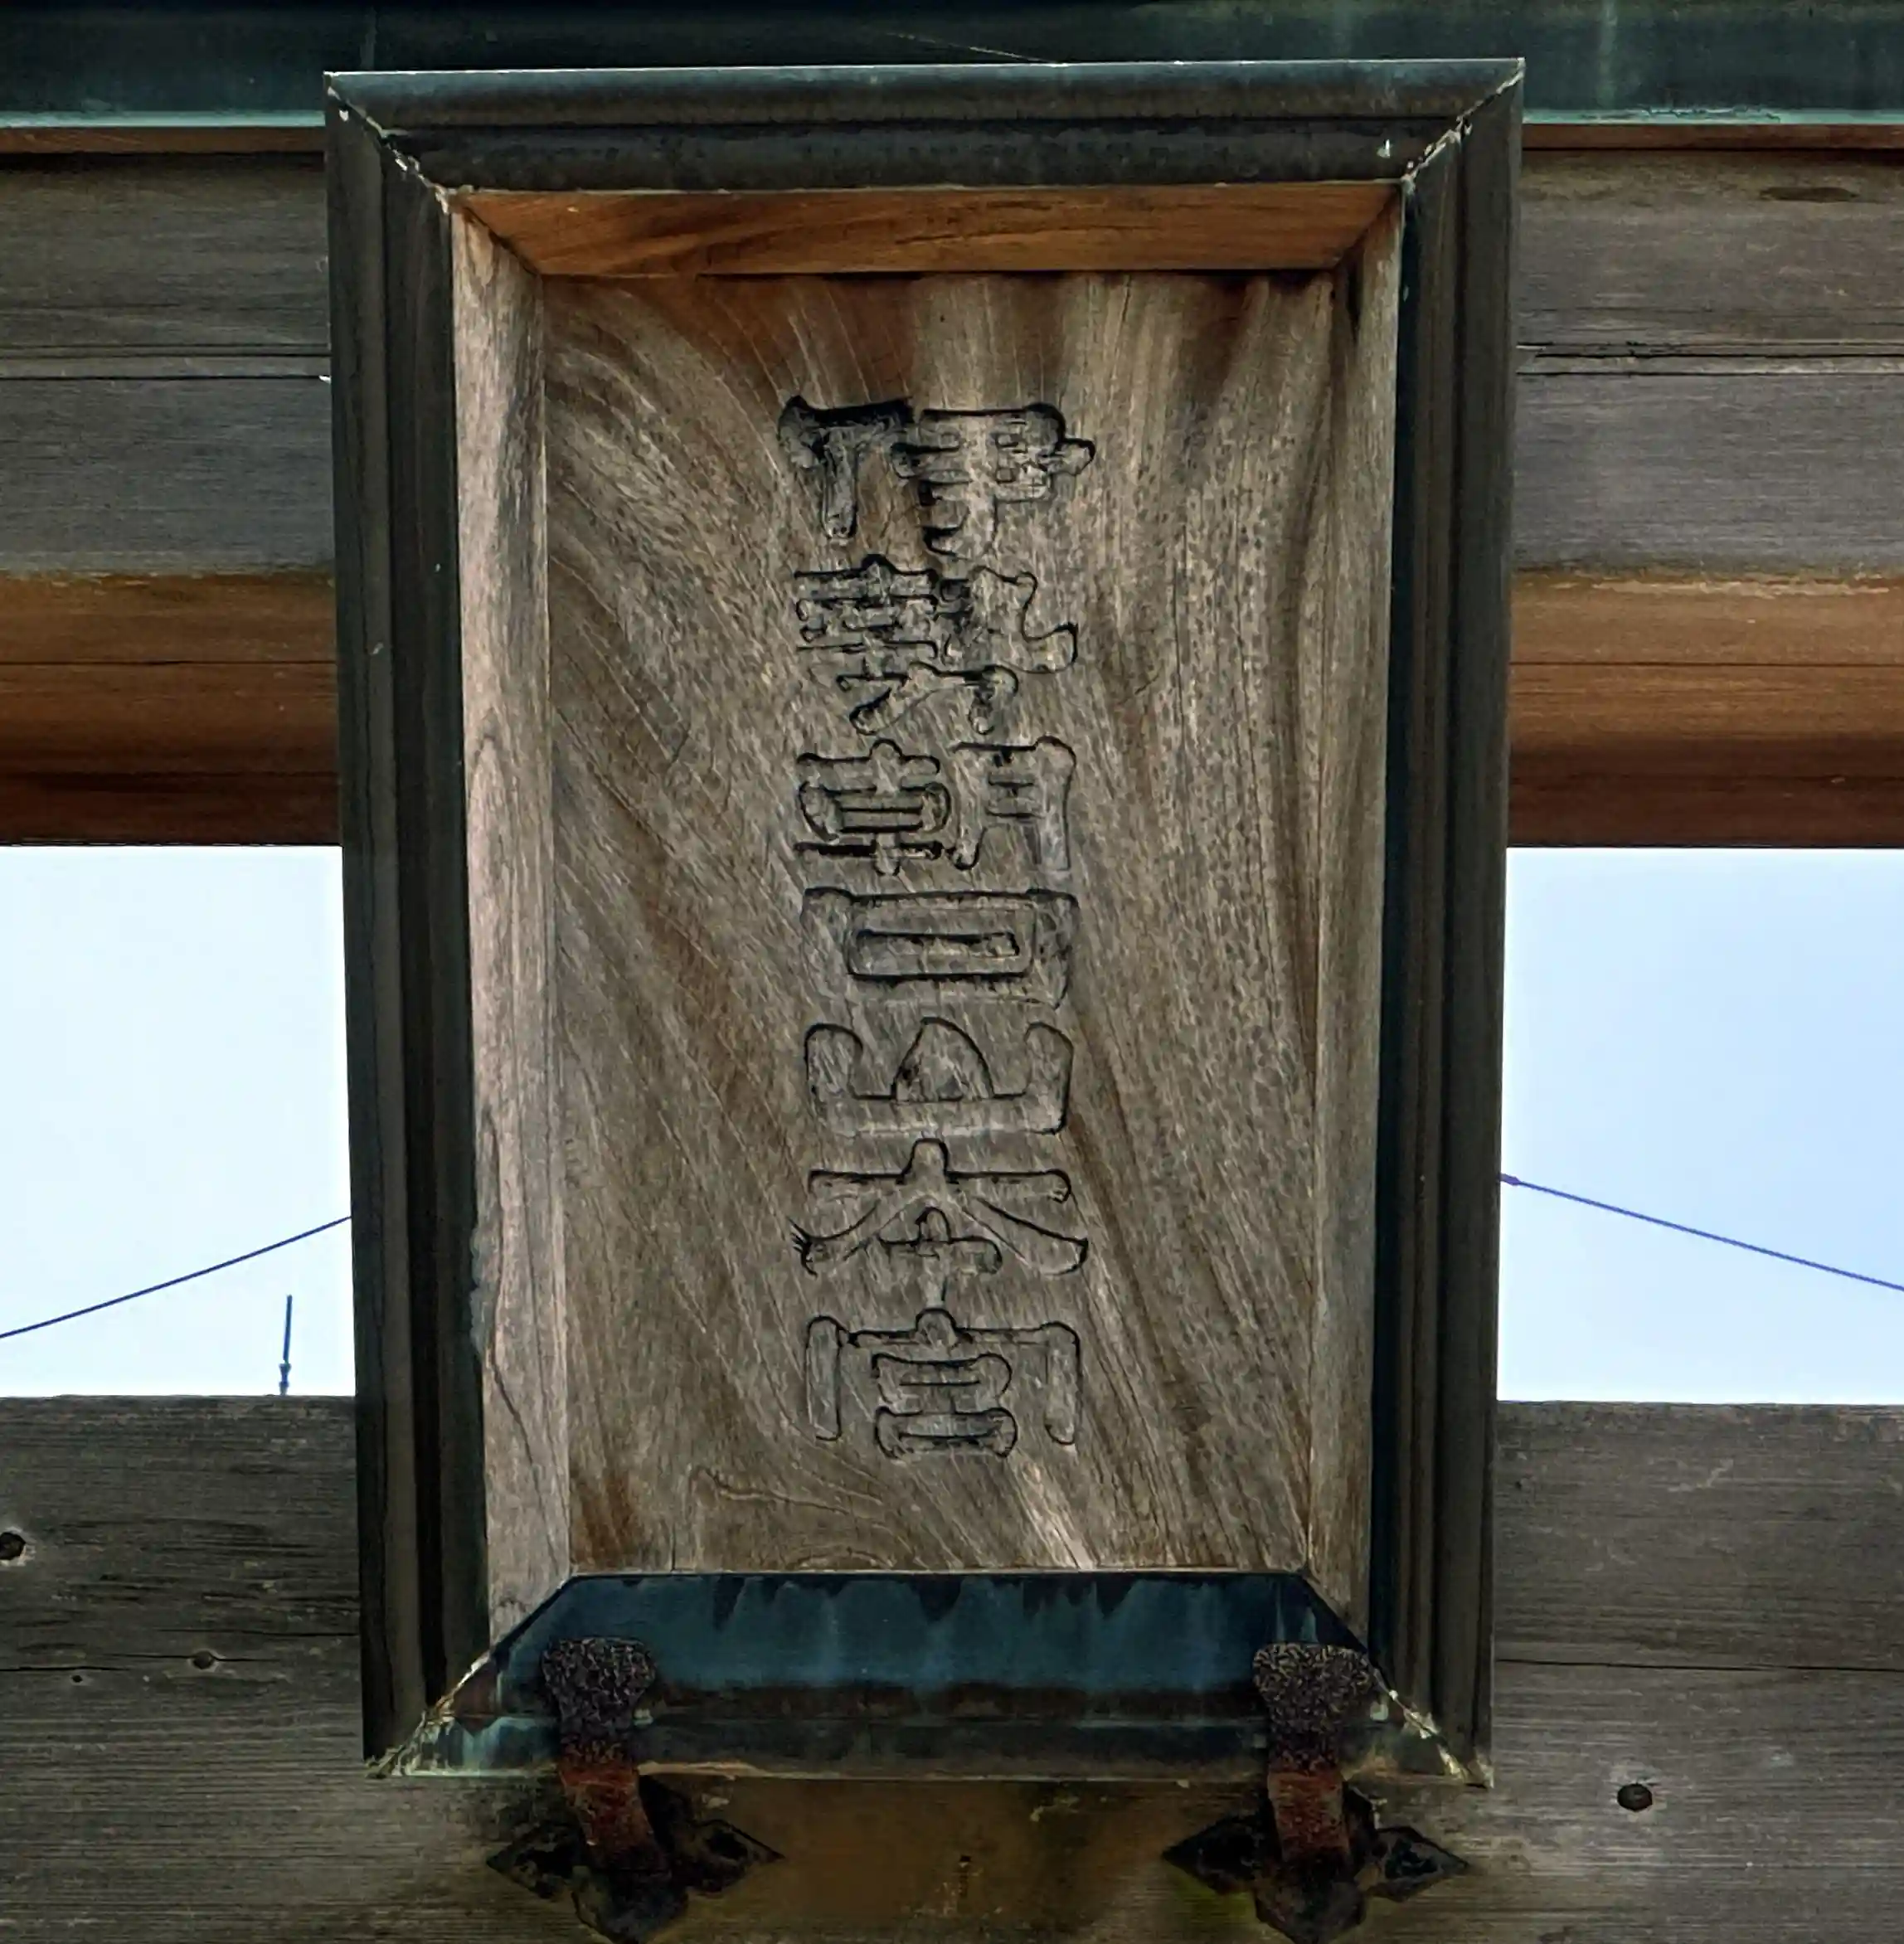 伊勢朝日山本宮